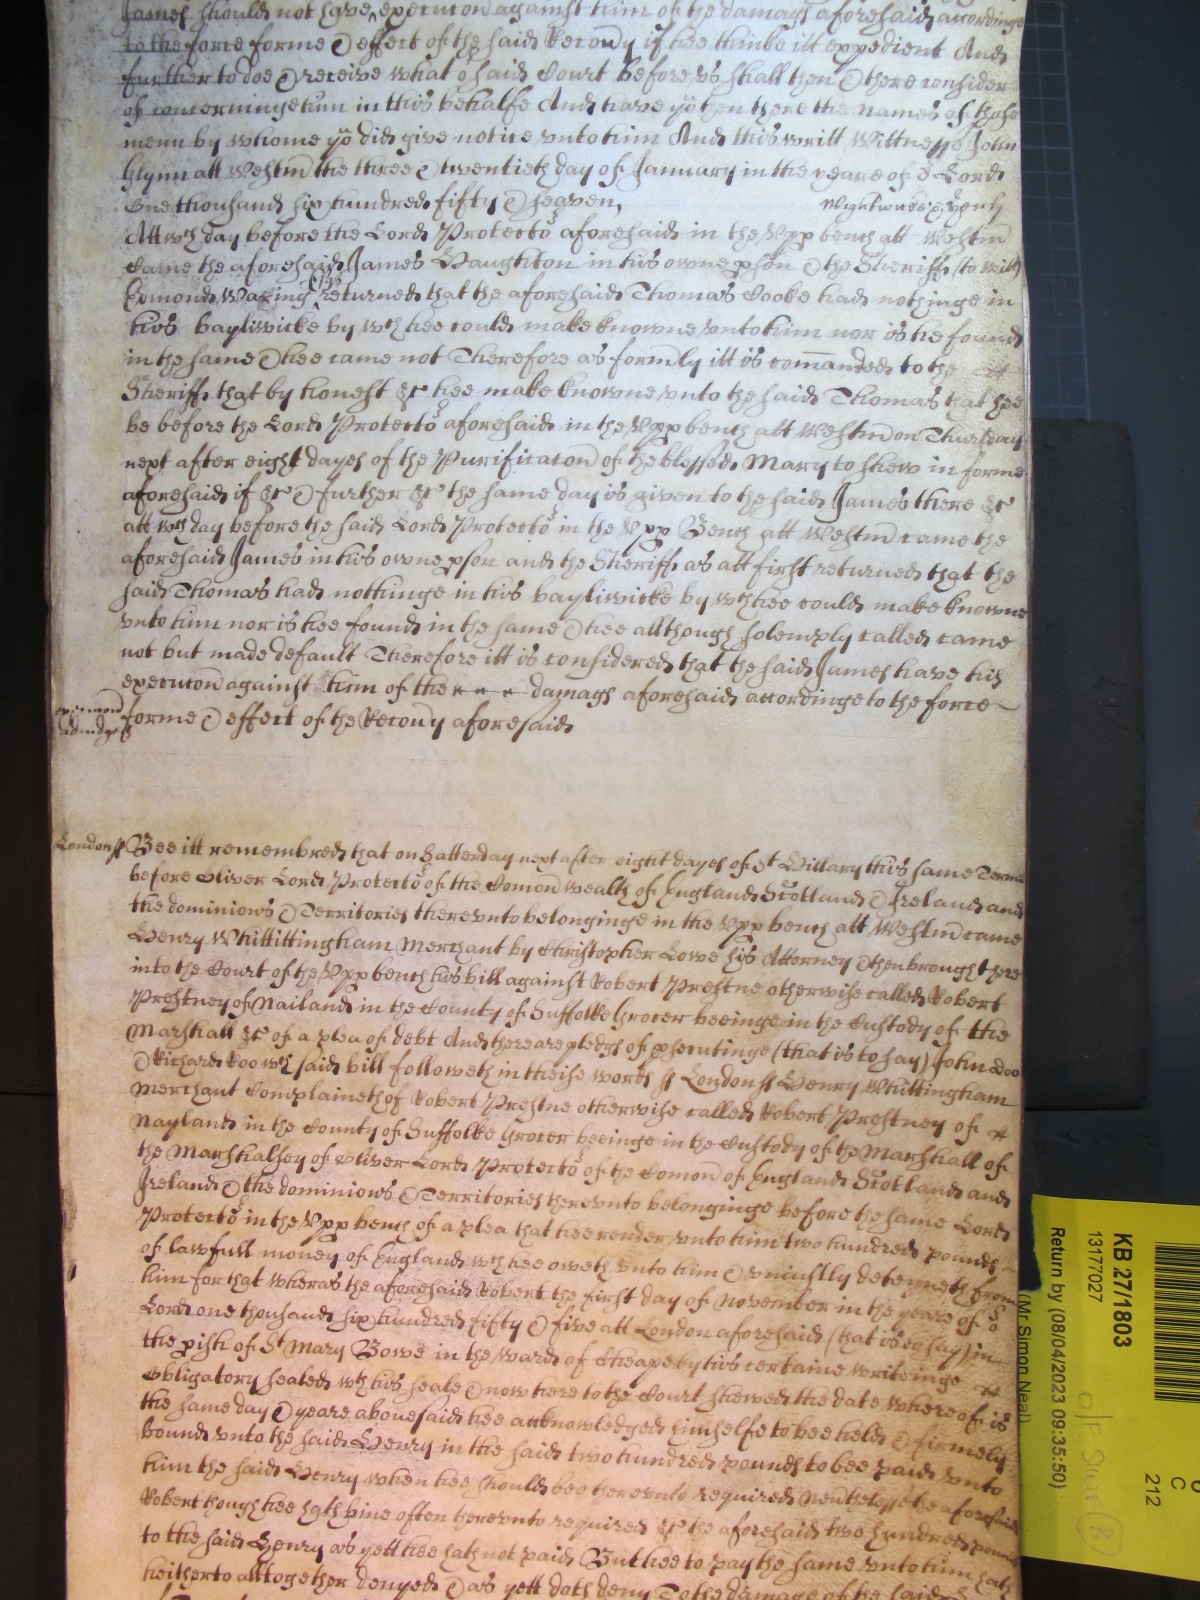 James should not have execucon against him of the damags aforesaid accordinge
to the force forme & effect of the said Recovry if hee thinke itt expedient And
further to doe & receive what ye said Court before us shall then & there consider
of concerninge him in this behalfe And have yo then there the names of those
menn by whome yo did give notice unto him And this writt Wittnesse John
Glynn att Westm the three & twentieth day of January in the yeare of o Lord
One thousand six hundred fifty & seaven,
Att wch day before the Lord Protecto aforesaid in the Upp bench att Westm
Came the aforesaid James Haughton in his owne pson & the Sheriffs (to witt)
Edmond Waring returned that the aforesaid Thomas Cooke had nothinge in
his bayliwicke by wch hee could make knowne unto him nor is he found
in the same & hee came not Therefore as formly itt is comanded to the
Sheriffs that by honest &c hee make knowne unto the said Thomas that hee
be before the Lord Protecto aforesaid in the Upp bench att Westm on Thursday
next after eight dayes of the Purificacon of the blessed Mary to shew in forme
aforesaid if &c & further &c the same day is given to the said James there &c
att wch day before the said Lord Protecto in the Upp Bench att Westm came the
aforesaid James in his owne pson and the Sheriffs as att first returned that the
said Thomas had nothinge in his bayliwicke by wch hee could make knowne
unto him nor is hee found in the same & hee allthough solemply called came
not but made default Therefore itt is considered that the said James have his
execucon against him of the damags aforesaid accordinge to the force
forme & effect of the Recovry aforesaid
London ss Bee itt remembred that on Satterday next after eight dayes of St Hillary this same Terme
before Oliver Lord Protecto of the Comonwealth of England Scotland & Ireland and
the dominions & Territories thereunto belonginge in the Upp bench att Westm came
Henry Whittittingham Merchant by Christopher Lowe his Attorney & then brought here
into the Court of the Upp bench his bill against Robert Prestne otherwise called Robert
Prestney of Nailand in the County of Suffolke Grocer beeinge in the Custody of the
Marshall &c of a plea of debt And there are pledgs of psecutinge (that is to say) John Doo
& Richard Roo wch said bill followeth in theise words ss London ss Henry Whittingham
Merchant Complaineth of Robert Prestne otherwise called Robert Prestney of
Nayland in the County of Suffolke Grocer beeinge in the Custody of the Marshall of
the Marshalsey of Oliver Lord Protecto of the Comon of England Scotland and
Ireland & the dominions & Territories thereunto belonginge before the same Lord
Protecto in the Upp bench of a plea that hee render unto him two hundred pounds
of lawfull money of England wch hee oweth unto him & uniustly deteyneth from
him for that wheras the aforesaid Robert the first day of November in the yeare of o
Lord one thousand six hundred fifty & five att London aforesaid (that is to say) in
the pish of St Mary Bowe in the Ward of Cheape by his certaine writeinge
Obligatory sealed wth his seale & now here to the Court shewed the date whereof is
the same day & yeare abovesaid hee acknowledged himselfe to bee held & firmely
bound unto the said Henry in the said two hundred pounds to bee paid unto
him the said Henry when hee should bee thereunto required Neuthelesse the aforesaid
Robert though hee hath bine often thereunto required &c the aforesaid two hundred pounds
to the said Henry as yett hee hath not paid But hee to pay the same unto him hath
heitherto alltogether denyed & as yett doth deny To the damage of the said
KB 27/1803
1317702​7
Return by (08/04/2023 09:35:50)
(Mr Simon Neal)
C
212